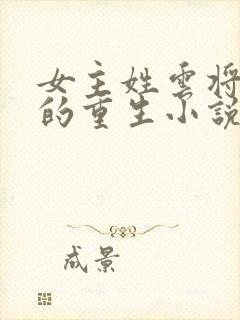 女主姓雲将
的重生小説
成景